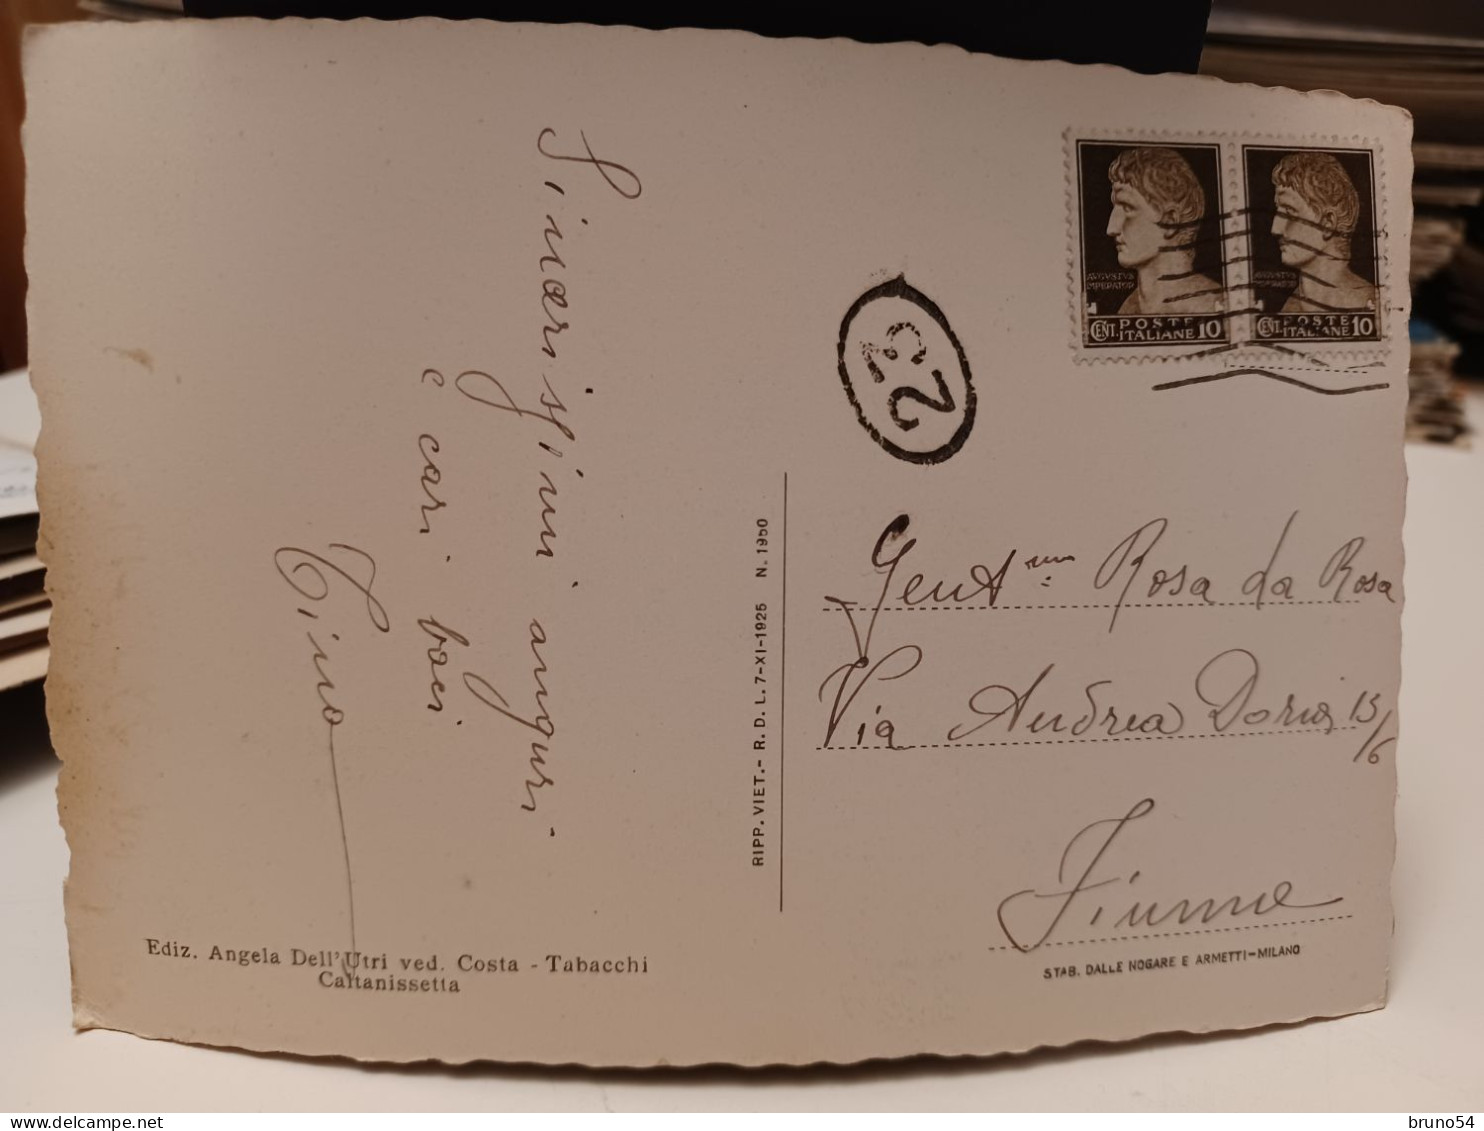 Sincerissimi auguri
e cari baci
Tino
RIPP. VIET. - R. D. L. 7-XI-1925 N. 1950
Ediz. Angela Dell'Utri ved. Costa - Tabacchi
Caltanissetta
AVGVSTVS
IMPERATOR
CENT. POSTE
ITALIANE 10
AVGVSTVS
IMPERATOR
CENT. POSTE
ITALIANE 10
23
Gent.ma Rosa da Rosa
Via Andrea Doria, 15/6
Fiume
STAB. DALLE NOGARE E ARMETTI-MILANO
bruno54